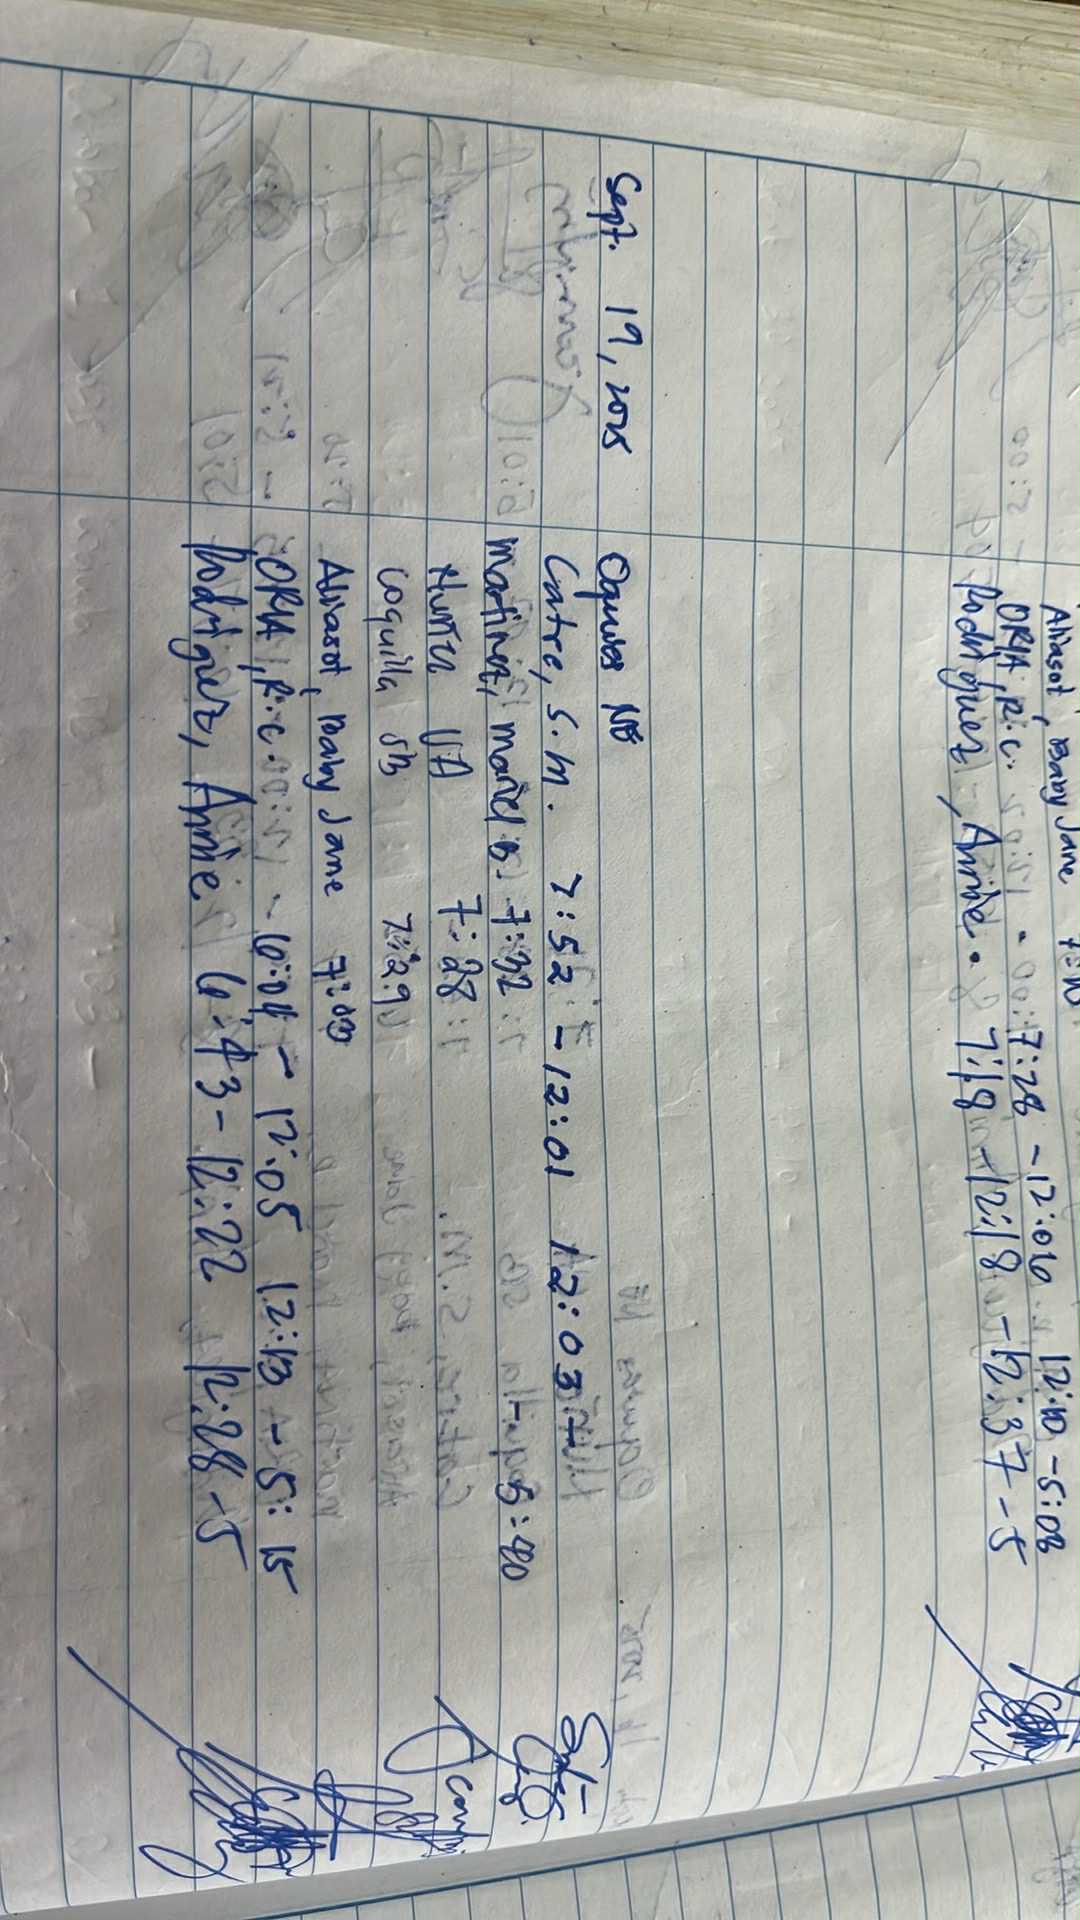 Aliasot, Baby Jane
ORIA, R.C. 7:28 - 12:06 12:10 - 5:08
Rodriguez, Annie. 7:18 - 12:18 - 12:37 - 5
Sept. 19, 2025 Oquias NB
Catre, S.M. 7:52 - 12:01 12:03 -
Martinez, Mariel B. 7:32 5:40
Hunta VA 7:28
Coquilla SB 7:29
Aliasot, Baby Jane 7:00
ORIA, R.C. 6:04 - 12:05 12:13 - 5:15
Rodriguez, Annie 6:43 - 12:22 12:28 - 5